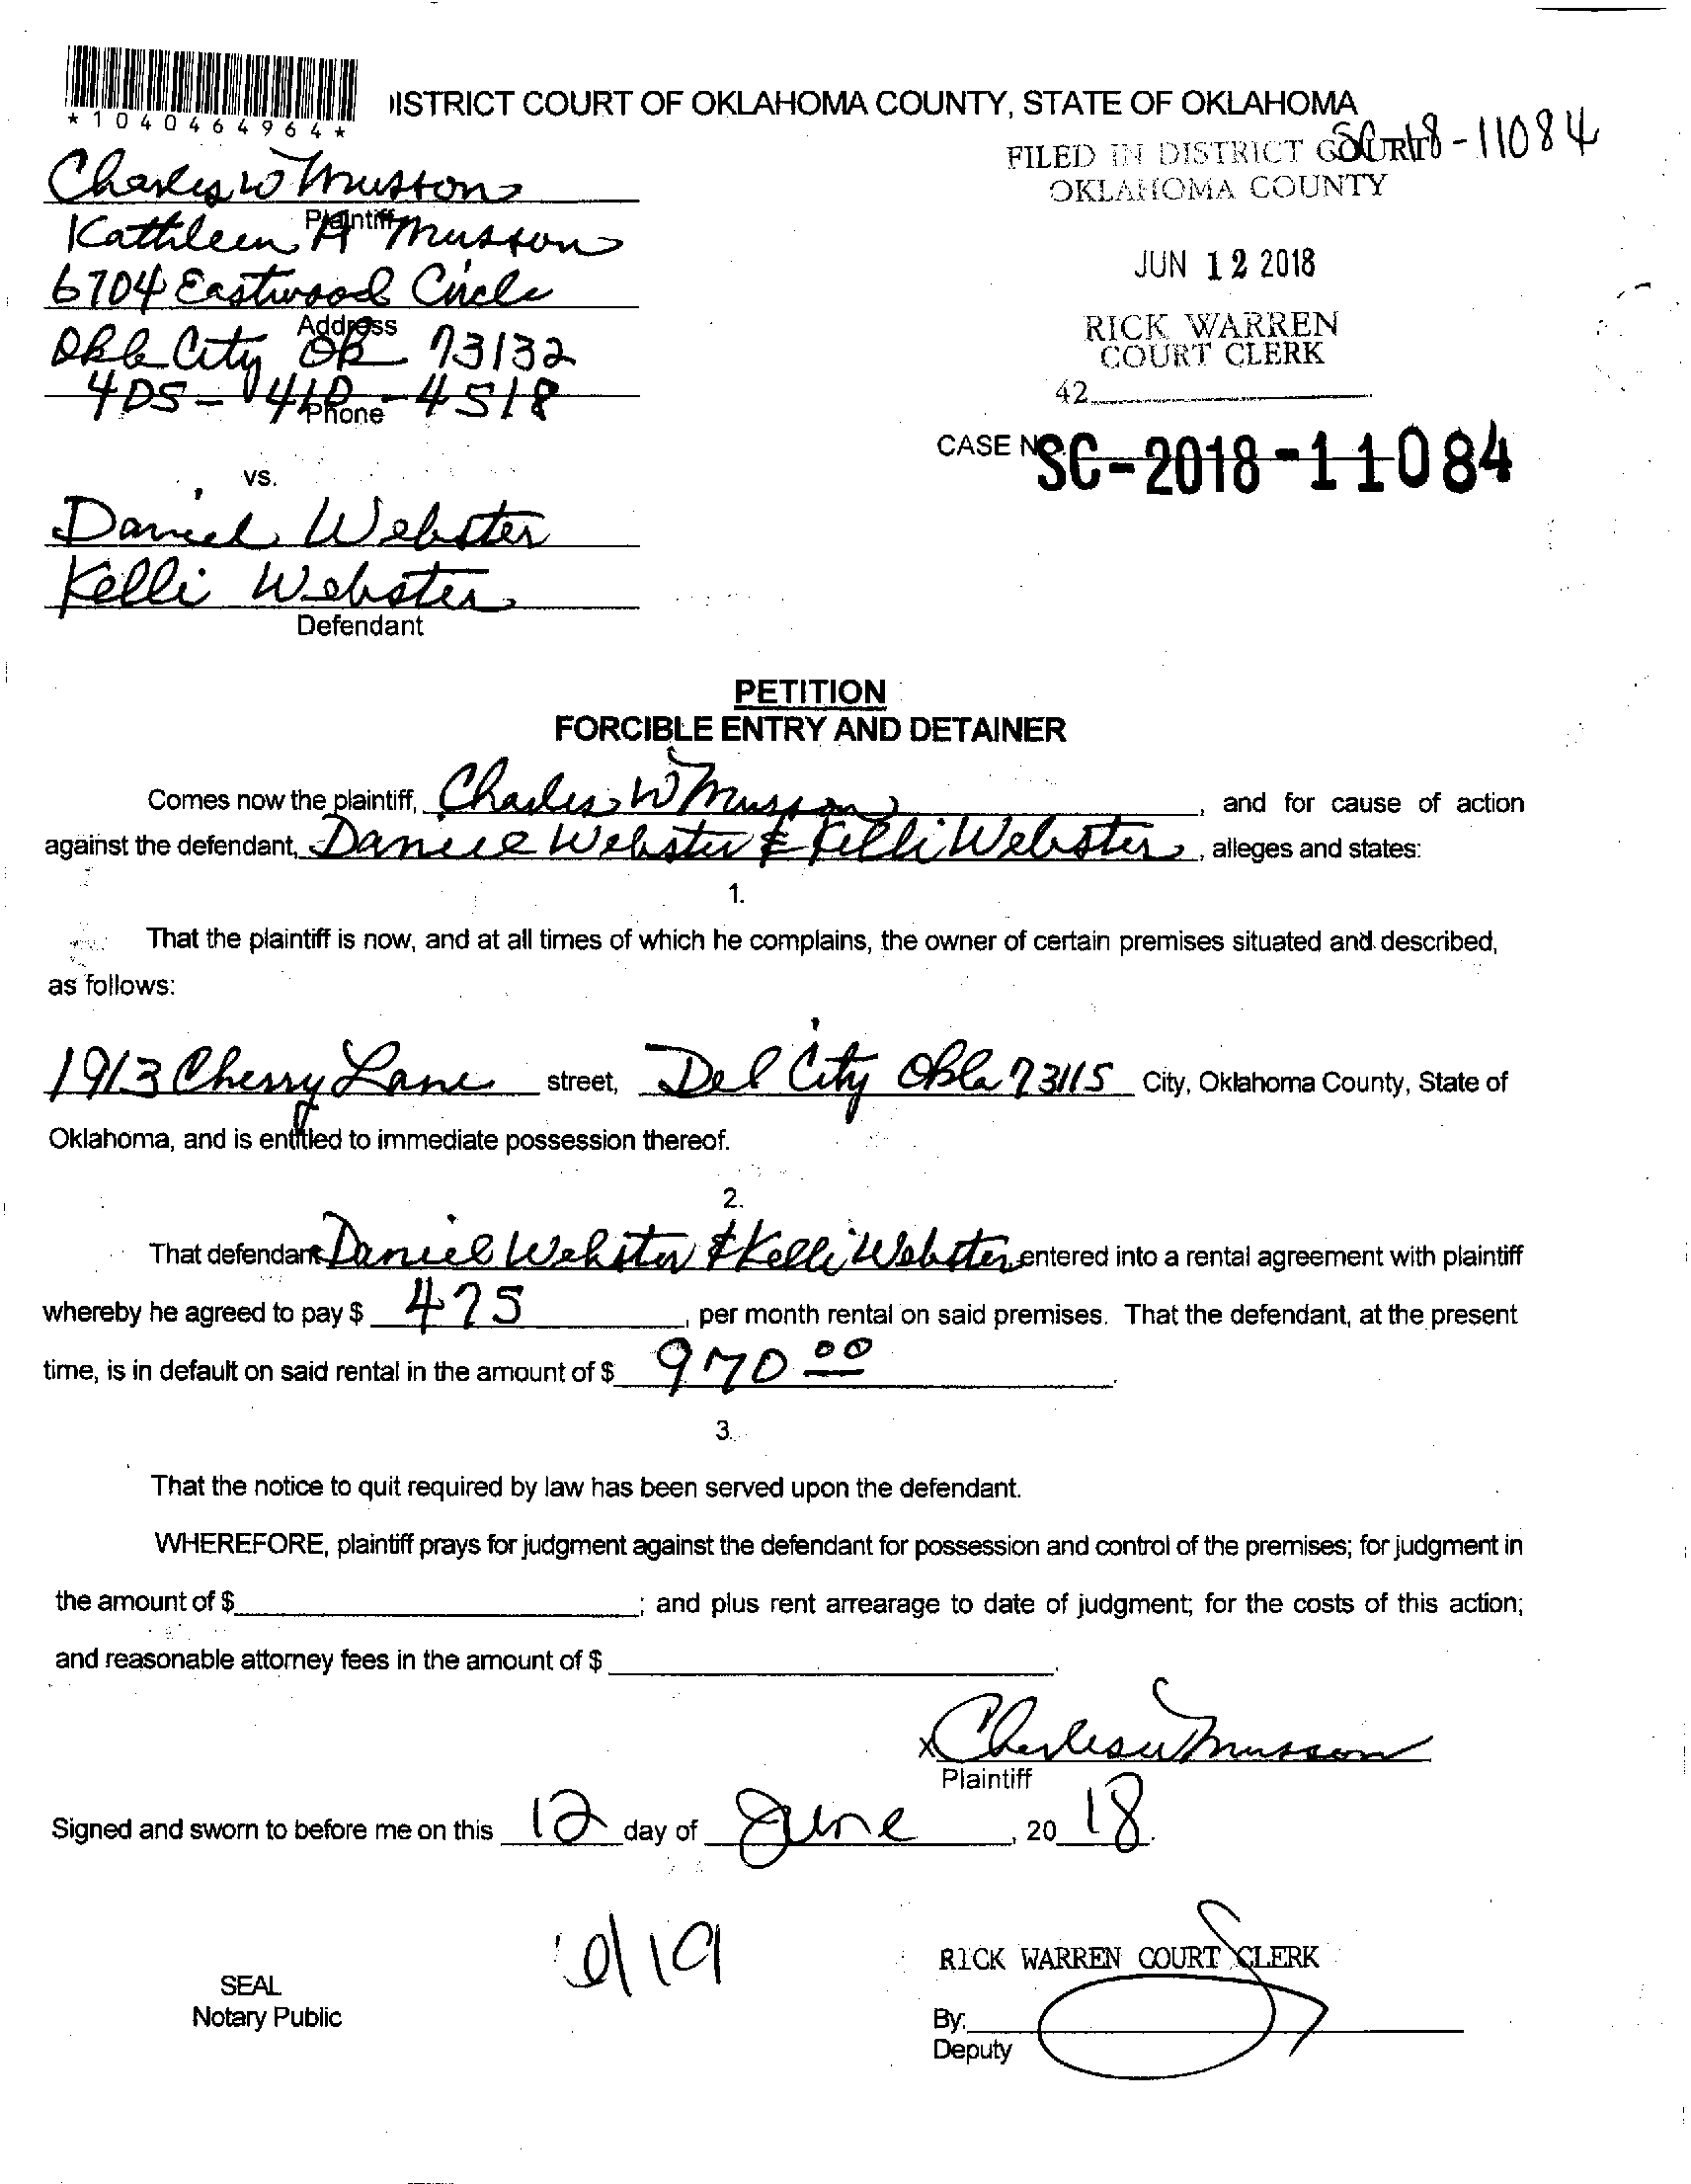 *1040464964*
DISTRICT COURT OF OKLAHOMA COUNTY, STATE OF OKLAHOMA
SC-18-11084
FILED IN DISTRICT COURT
OKLAHOMA COUNTY
JUN 12 2018
RICK WARREN
COURT CLERK
42
CASE NO. SC-2018-11084
Charles W Musson
Plaintiff
Kathleen A Musson
6704 Eastwood Circle
Address
Okla City Ok 73132
405-410-4518
Phone
vs.
Daniel Webster
Kelli Webster
Defendant
PETITION
FORCIBLE ENTRY AND DETAINER
Comes now the plaintiff, Charles W Musson, and for cause of action
against the defendant, Daniel Webster & Kelli Webster, alleges and states:
1.
That the plaintiff is now, and at all times of which he complains, the owner of certain premises situated and described,
as follows:
1913 Cherry Lane street, Del City Okla 73115 City, Oklahoma County, State of
Oklahoma, and is entitled to immediate possession thereof.
2.
That defendant Daniel Webster & Kelli Webster entered into a rental agreement with plaintiff
whereby he agreed to pay $ 475, per month rental on said premises. That the defendant, at the present
time, is in default on said rental in the amount of $ 970 00.
3.
That the notice to quit required by law has been served upon the defendant.
WHEREFORE, plaintiff prays for judgment against the defendant for possession and control of the premises; for judgment in
the amount of $ ; and plus rent arrearage to date of judgment; for the costs of this action;
and reasonable attorney fees in the amount of $ .
x Charles W Musson
Plaintiff
Signed and sworn to before me on this 12 day of June, 20 18.
RICK WARREN COURT CLERK
SEAL
Notary Public
By:
Deputy